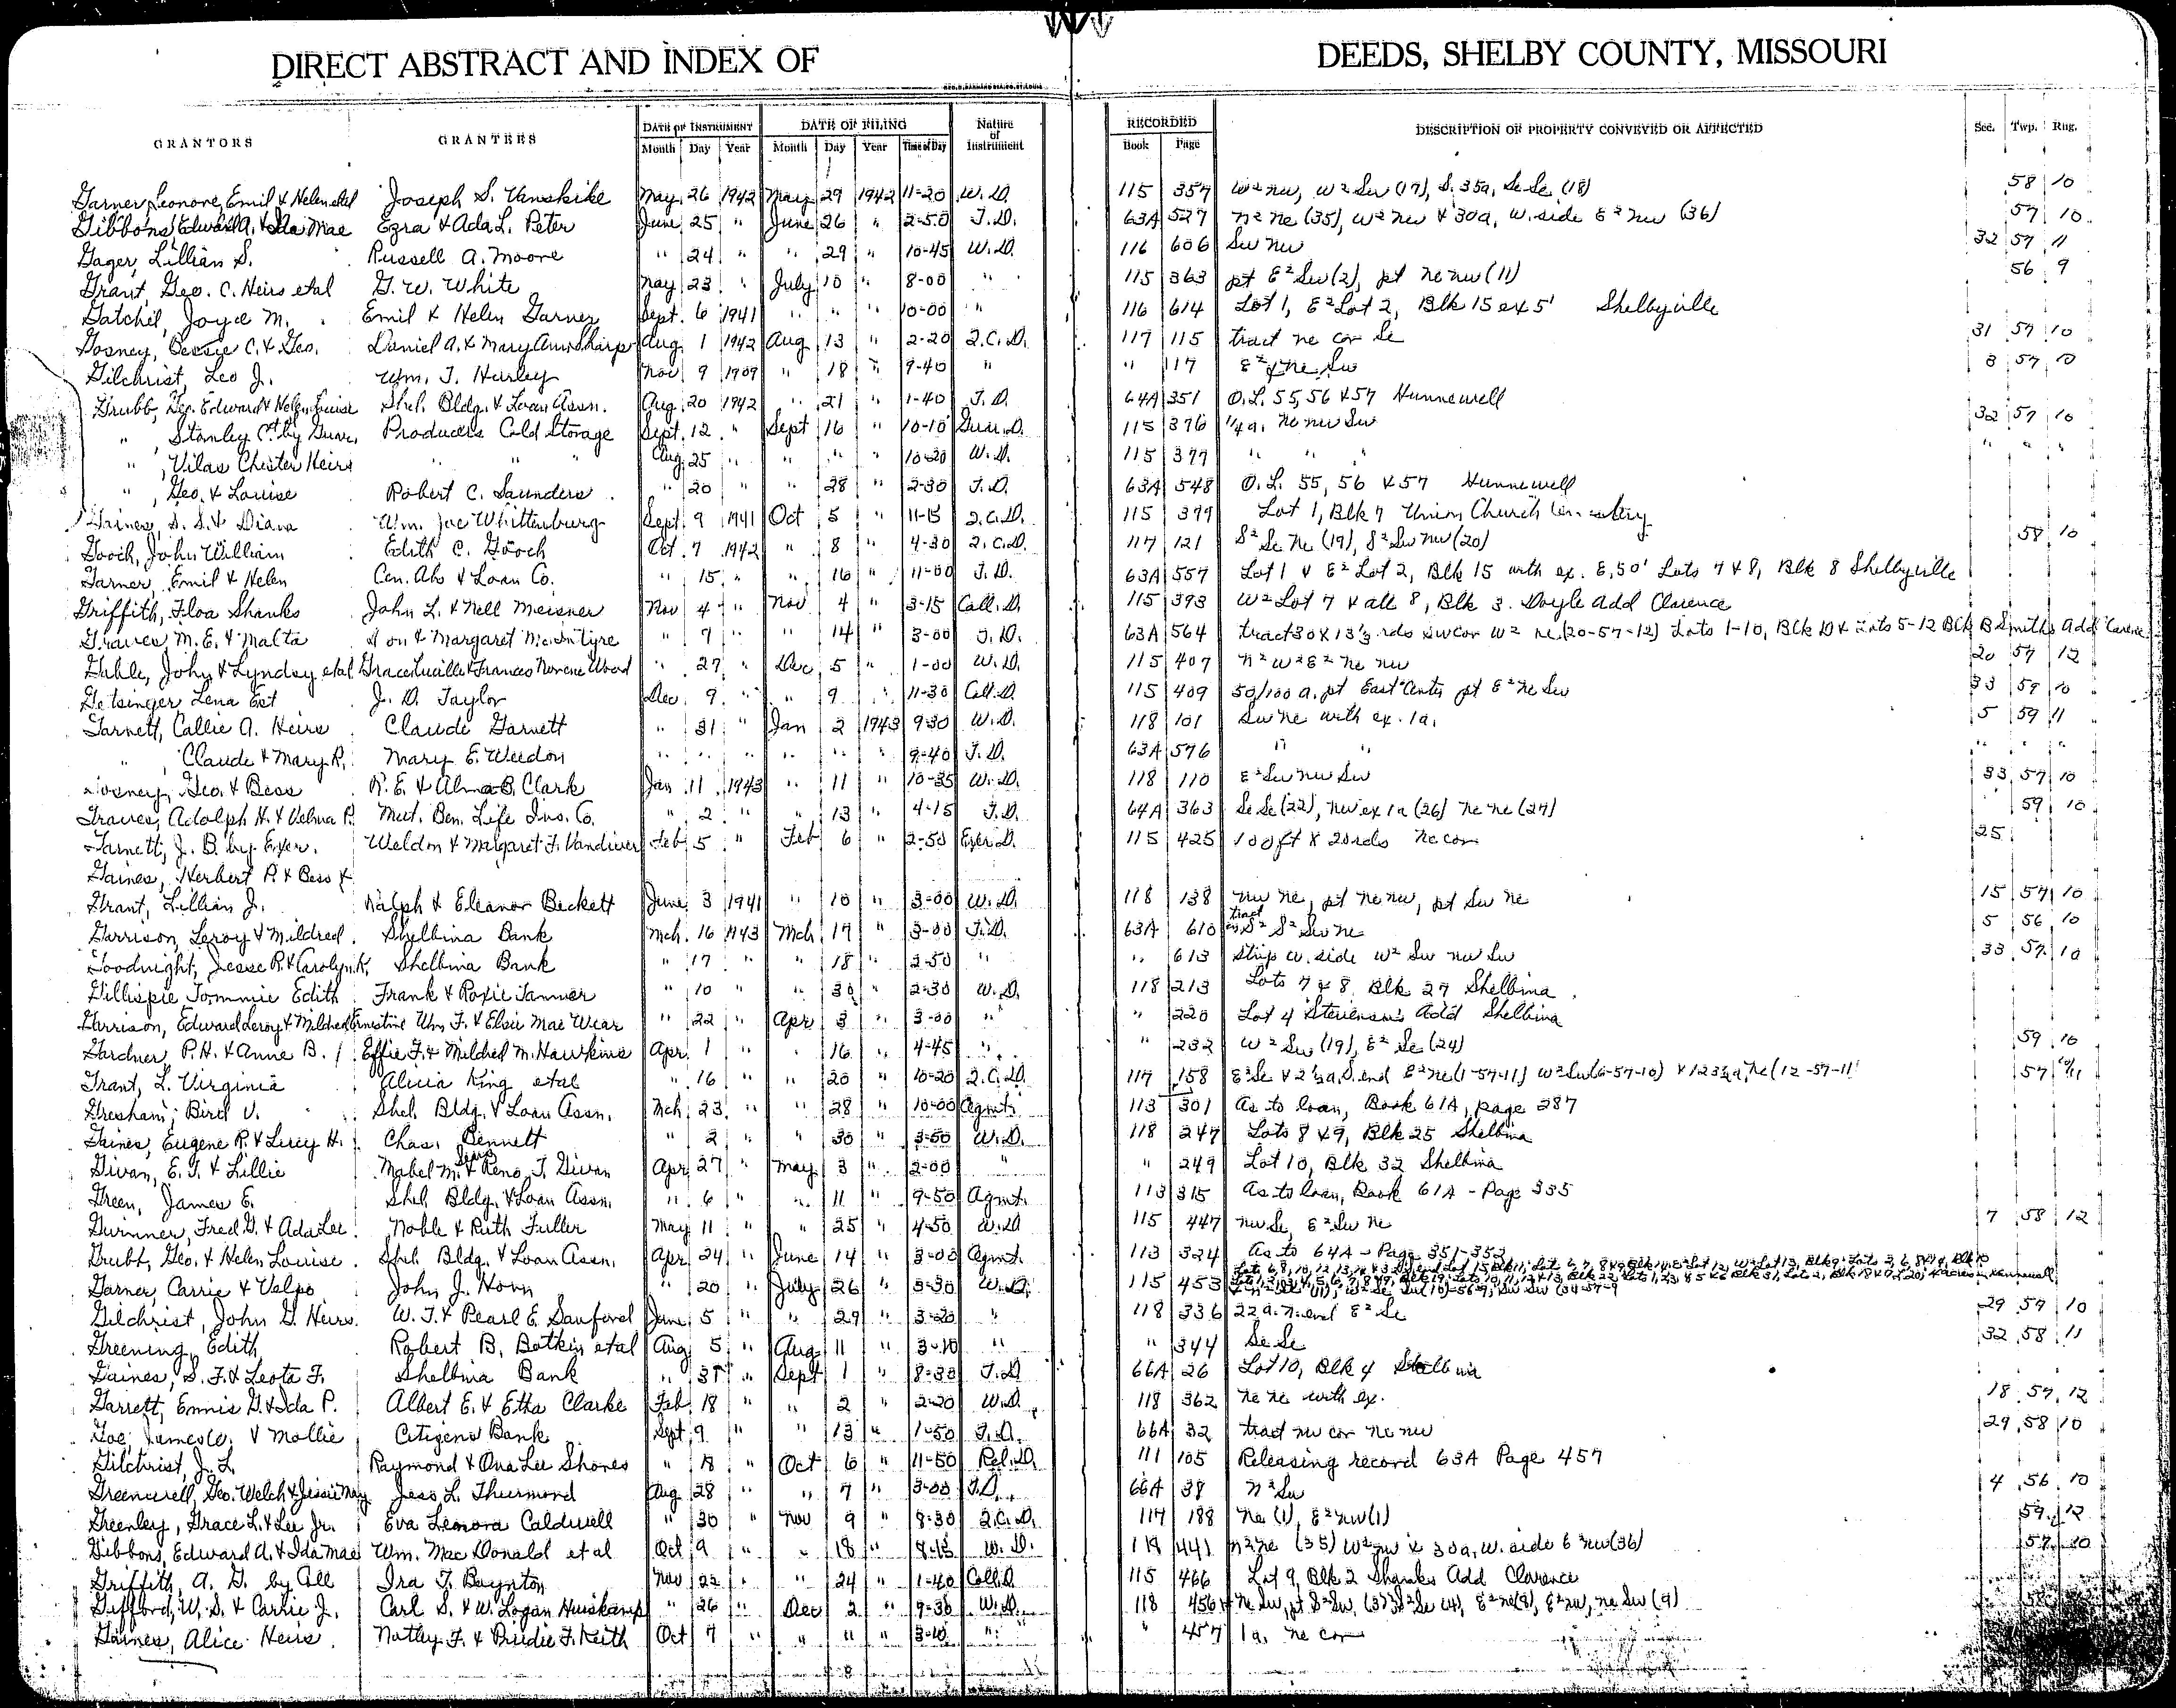 DIRECT ABSTRACT AND INDEX OF DEEDS, SHELBY COUNTY, MISSOURI
GRANTORS GRANTEES DATE OF INSTRUMENT DATE OF FILING Nature of Instrument RECORDED DESCRIPTION OF PROPERTY CONVEYED OR AFFECTED Sec. Twp. Rng.
Month Day Year Month Day Year Time of Day Book Page
Garner, Leonore, Emil & Helen etal Joseph S. Vanskike May 26 1942 May 29 1942 11-20 W.D. 115 357 W² nw, W² Sw (17), S. 35a, Se Se (18) 58 10
Gibbons, Edward A. & Ida Mae Ezra & Ada L. Peter June 25 " June 26 " 2-50 T.D. 63A 527 n² ne (35), W² nw & 30a, W. side E² nw (36) 57 10
Gager, Lillian S. Russell A. Moore " 24 " " 29 " 10-45 W.D. 116 606 Sw nw 32 57 11
Grant, Geo. C. Heirs etal G. W. White May 23 " July 10 " 8-00 " 115 363 pt E² Sw (2), pt ne nw (11) 56 9
Gatchel, Joyce M. Emil & Helen Garner Sept. 6 1941 " " " 10-00 " 116 614 Lot 1, E² Lot 2, Blk 15 ex 5' Shelbyville
Gosney, Bessie C. & Geo. Daniel A. & Mary Ann Sharp Aug 1 1942 Aug 13 " 2-20 Q.C.D. 117 115 tract ne cor Se 31 57 10
Gilchrist, Leo J. Wm. T. Hurley Nov 9 1909 " 18 " 9-40 " " 117 E² ne Sw 8 57 10
Grubb, Geo. Edward & Helen Louise Shel. Bldg. & Loan Assn. Aug. 20 1942 " 21 " 1-40 T.D. 64A 351 O.L. 55, 56 & 57 Hunnewell
" Stanley C. by Guar. Producers Cold Storage Sept. 12 " Sept 16 " 10-10 Guar. D. 115 376 1/4 a. ne nw Sw 32 57 10
" , Vilas Chester Heirs " " " Aug. 25 " " " " 10-20 W.D. 115 377 " " " " " "
" , Geo. & Louise Robert C. Saunders " 20 " " 28 " 2-30 T.D. 63A 548 O.L. 55, 56 & 57 Hunnewell
Gaines, S. S. & Diana Wm. Joe Whittenburg Sept. 9 1941 Oct 5 " 11-15 Q.C.D. 115 379 Lot 1, Blk 7 Union Church Cemetery
Gooch, John William Edith C. Gooch Oct. 7 1942 " 8 " 4-30 Q.C.D. 117 121 S² Se ne (19), S² Sw nw (20) 58 10
Garner, Emil & Helen Cen. Abs & Loan Co. " 15 " " 16 " 11-00 T.D. 63A 557 Lot 1 & E² Lot 2, Blk 15 with ex. E. 50' Lots 7 & 8, Blk 8 Shelbyville
Griffith, Floa Shanks John L. & Nell Meisner Nov 4 " Nov 4 " 3-15 Coll. D. 115 393 W² Lot 7 & all 8, Blk 3. Doyle Add Clarence
Graves, M. E. & Malta & Margaret McIntyre " 7 " " 14 " 3-00 T.D. 63A 564 tract 30 x 13 1/3 rds sw cor W² ne (20-57-12) Lots 1-10, Blk 10 & Lots 5-12 Blk B Smiths Add Clarence
Gable, John & Lyndsy etal Grace Lucille & Frances Norene Wood " 27 " Dec 5 " 1-00 W.D. 115 407 n² W² E² ne nw 20 57 12
Getsinger Lena Est J. D. Taylor Dec 9 " " 9 " 11-30 Coll. D. 115 409 50/100 a. pt East Center pt E² ne Sw 33 59 10
Garnett, Callie A. Heirs Claude Garnett " 31 " Jan 2 1943 9-30 W.D. 118 101 Sw ne with ex. 1a. 5 59 11
" , Claude & Mary R. Mary E. Weedon " " " " " " 9-40 T.D. 63A 576 " " " " "
Gosney, Geo. & Bess R. E. & Alma B. Clark Jan 11 1943 " 11 " 10-35 W.D. 118 110 E² Sw nw Sw 33 57 10
Graves, Adolph H. & Velma P. Mut. Ben. Life Ins. Co. " 2 " " 13 " 4-15 T.D. 64A 363 Se Se (22), nw ex 1a (26) ne ne (27) 59 10
Garnett, J. B. by Exer. Weldon & Margaret F. Vandiver Feb 5 " Feb 6 " 2-50 Exer D. 115 425 100 ft x 20 rds ne cor 25
Gaines, Herbert P. & Bess &
Grant, Lillian J. Ralph & Eleanor Beckett June 3 1941 " 10 " 3-00 W.D. 118 138 nw ne, pt ne nw, pt Sw ne 15 57 10
Garrison, Leroy & Mildred Shelbina Bank Mch. 16 1943 Mch 17 " 3-00 T.D. 63A 610 tract in S² S² Sw ne 5 56 10
Goodnight, Jesse R. & Carolyn K. Shelbina Bank " 17 " " 18 " 2-50 " " 613 Strip W. side W² Sw nw Sw 33 57 10
Gillispie Tommie Edith Frank & Roxie Tanner " 10 " " 30 " 2-30 W.D. 118 213 Lots 7 & 8, Blk 27 Shelbina
Garrison, Edward Leroy & Mildred Ernestine Wm F. & Elsie Mae Wear " 22 " Apr 3 " 3-00 " " 220 Lot 4 Stevenson's Add Shelbina
Gardner, P. H. & Anne B. Effie F. & Mildred M. Hawkins Apr. 1 " " 16 " 4-45 " " 232 W² Sw (19), E² Se (24) 59 10
Grant, L. Virginia Alicia King etal " 16 " " 20 " 10-20 Q.C.D. 117 158 E² Se & 2 1/2 a. S. end E² ne (1-57-11) W² Sw (6-57-10) & ne (12-57-11) 57 10/11
Gresham, Bird V. Shel. Bldg. & Loan Assn. Mch 23 " " 28 " 10-00 Agmt. 113 301 As to loan, Book 61A, page 287
Gaines, Eugene R. & Lucy H. Chas. Bennett " 2 " " 30 " 3-50 W.D. 118 247 Lots 8 & 9, Blk 25 Shelbina
Givan, E. T. & Lillie Mabel M. Sears & Reno T. Givan Apr 27 " May 3 " 2-00 " " 249 Lot 10, Blk 32 Shelbina
Green, James E. Shel. Bldg. & Loan Assn. " 6 " " 11 " 9-50 Agmt. 113 315 As to loan, Book 61A - Page 335
Gwinner, Fred G. & Ada Lee Noble & Ruth Fuller May 11 " " 25 " 4-50 W.D. 115 447 nw Se, E² Sw ne 7 58 12
Grubb, Geo. & Helen Louise Shel. Bldg. & Loan Assn. Apr 24 " June 14 " 3-00 Agmt. 113 324 As to 64A - Page 351-352
Garner, Carrie & Velpo John J. Horn " 20 " July 26 " 3-30 W.D. 115 453
Gilchrist, John G. Heirs W. T. & Pearl E. Sanford June 5 " " 29 " 3-20 " 118 336 22 a. n. end E² Se 29 57 10
Greening, Edith Robert B. Botkin etal Aug 5 " Aug 11 " 3-10 " " 344 Se Se 32 58 11
Gaines, S. F. & Leota F. Shelbina Bank " 31 " Sept 1 " 8-30 T.D. 66A 26 Lot 10, Blk 4 Shelbina
Garrett, Ennis G. & Ida P. Albert E. & Etha Clarke Feb 18 " " 2 " 2-20 W.D. 118 362 ne ne with ex. 18 57 12
Goe, James W. & Mollie Citizens Bank Sept 9 " " 13 " 1-50 T.D. 66A 32 tract nw cor ne nw 29 58 10
Gilchrist, J. L. Raymond & Ona Lee Shores " 18 " Oct 6 " 11-50 Rel. D. 111 105 Releasing record 63A Page 457
Greenwell, Geo. Welch & Jessie May Jess L. Thurmond Aug 28 " " 7 " 3-00 T.D. 66A 38 n² Sw 4 56 10
Greenley, Grace L. & Lee Jr. Eva Lenora Caldwell " 30 " Nov 9 " 8-30 Q.C.D. 117 188 ne (1), E² nw (1) 59 12
Gibbons, Edward A. & Ida Mae Wm. MacDonald et al Oct 9 " " 18 " 8-45 W.D. 118 441 n² ne (35) W² nw & 30a, W. side E² nw (36) 57 10
Griffith, A. G. by Coll Ira T. Boynton Nov 22 " " 24 " 1-40 Coll. D. 115 466 Lot 9, Blk 2 Shanks Add Clarence
Gifford, W. S. & Carlie J. Carl S. & W. Logan Huiskamp " 26 " Dec 2 " 9-30 W.D. 118 456 ne Sw, pt S² Sw, E² ne (9), E² nw, ne Sw (9)
Gaines, Alice Heirs Natley F. & Birdie F. Keith Oct 7 " " " " 3-10 " " 457 1a. ne cor